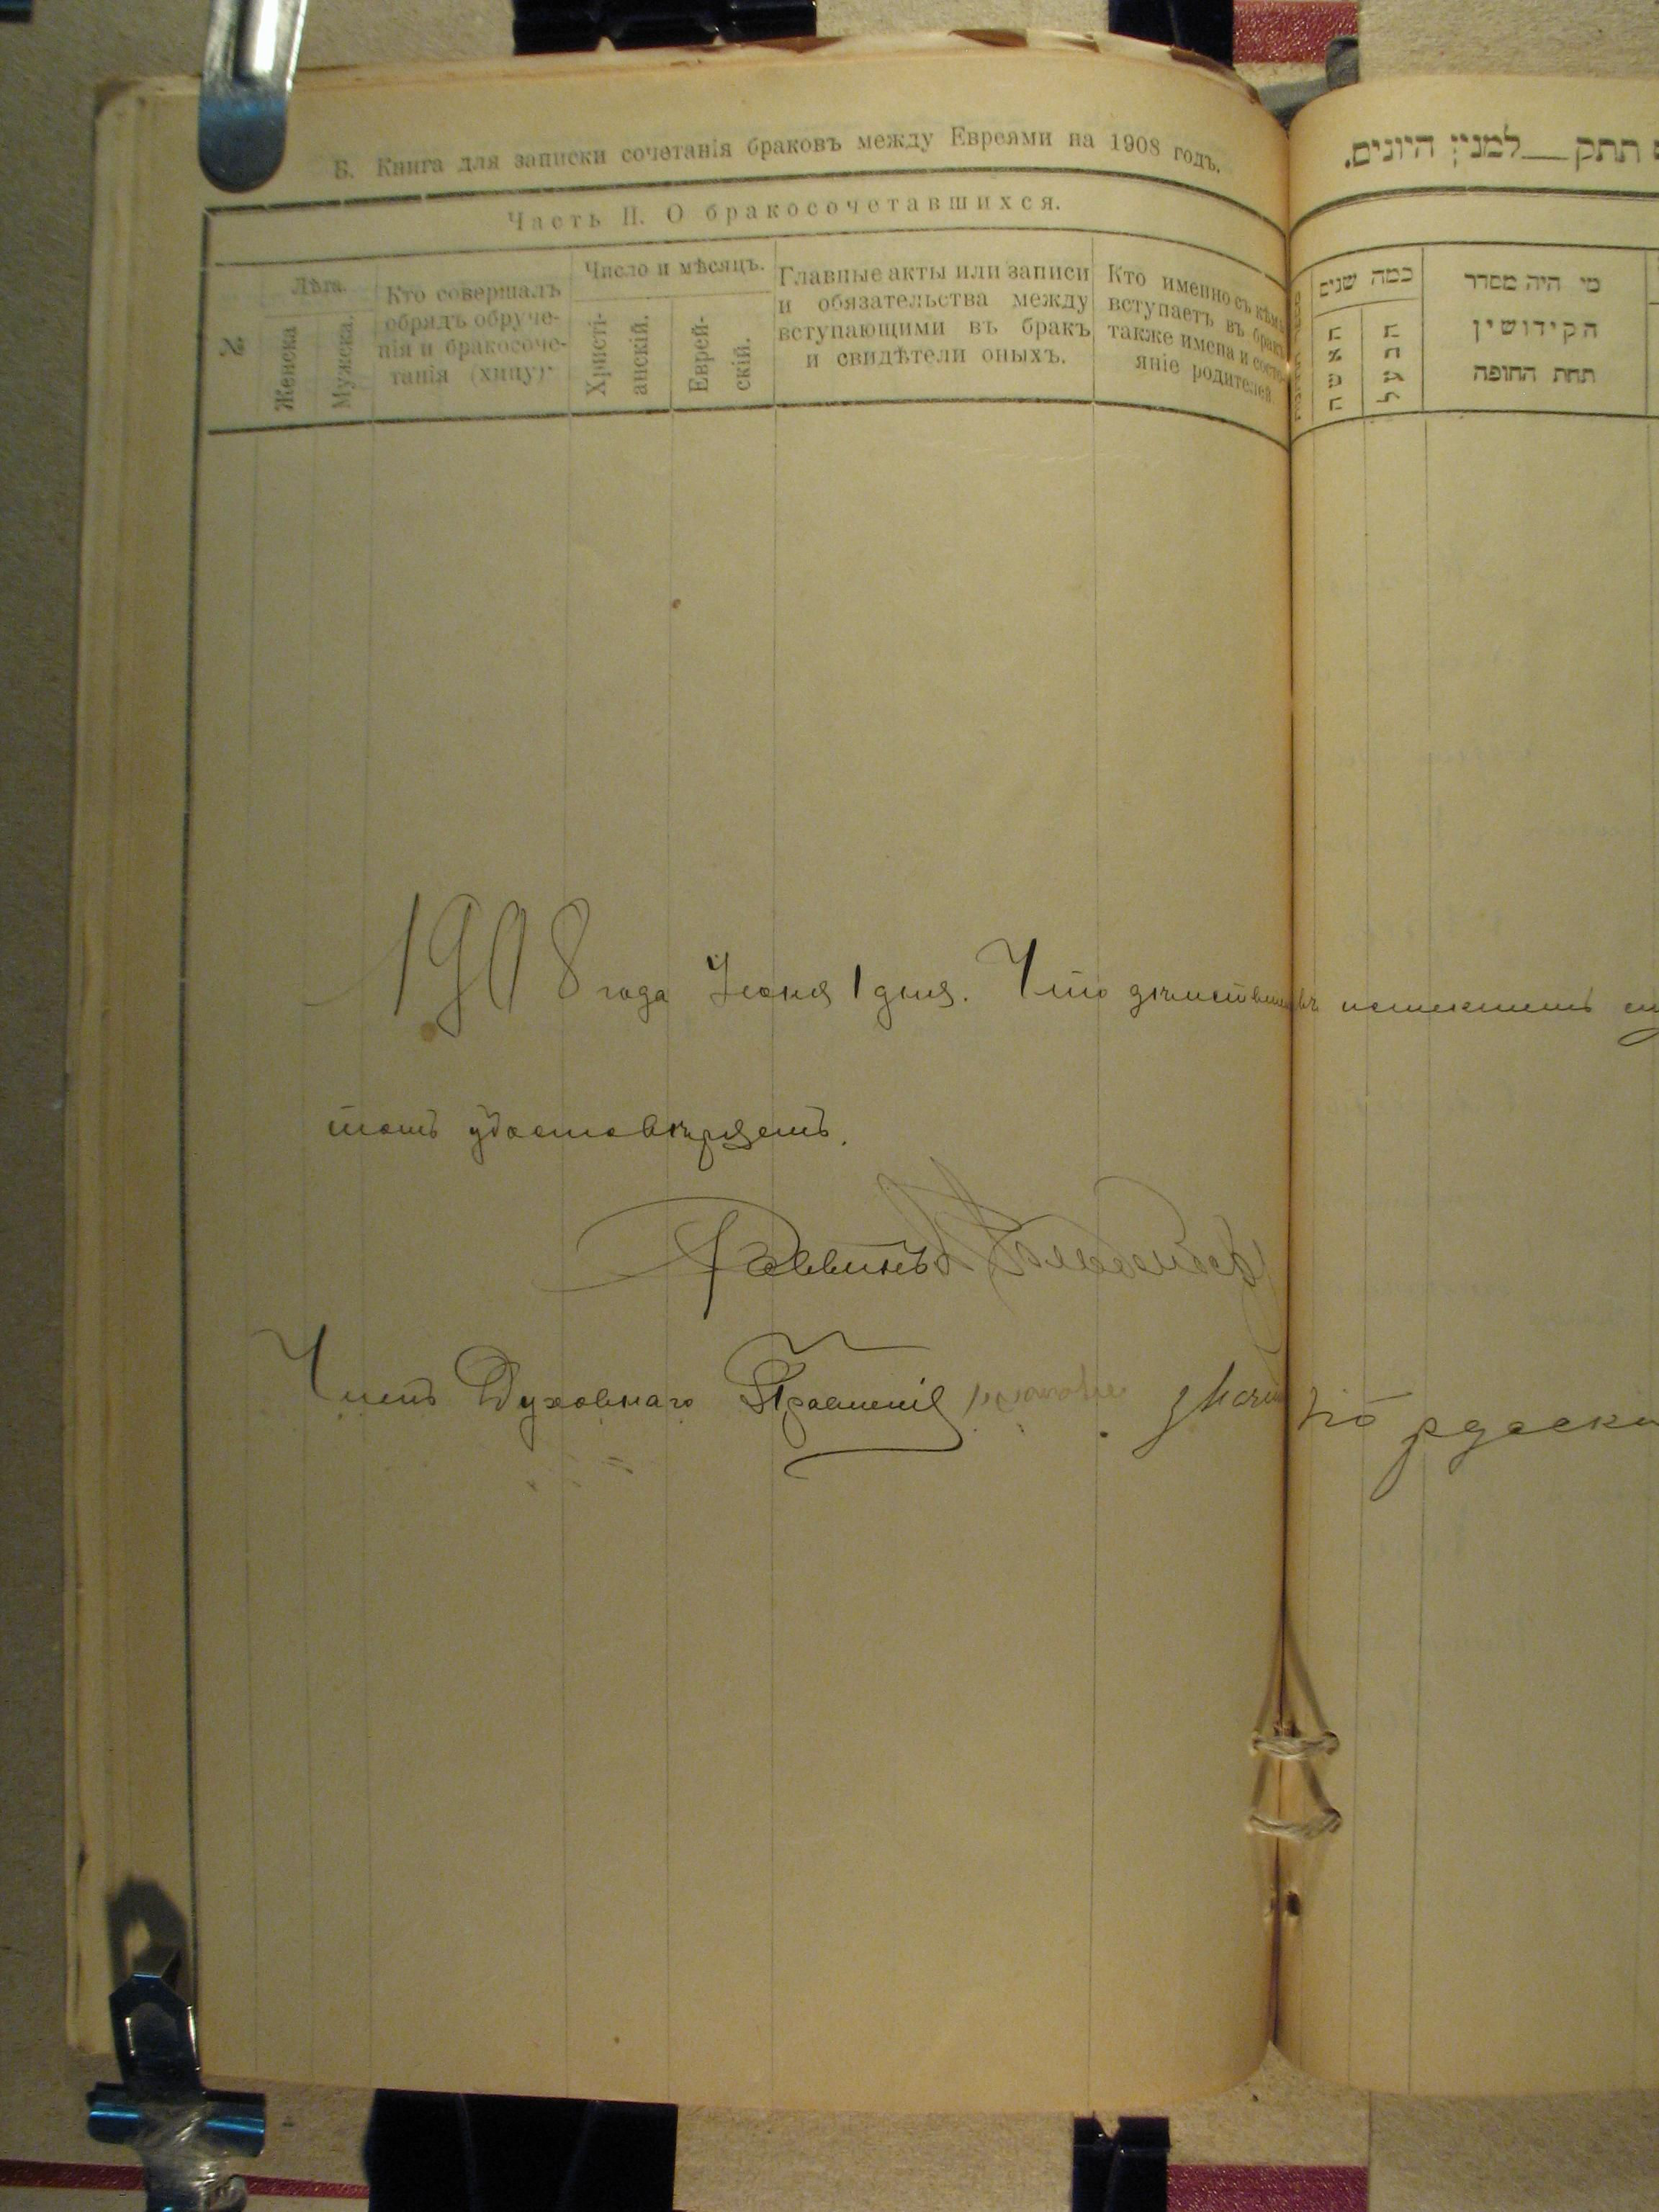 Б. Книга для записки сочетанія браковъ между Евреями на 1908 годъ.
Часть II. О бракосочетавшихся.
№
Лѣта.
Женска
Мужска.
Кто совершалъ
обрядъ обруче-
нія и бракосоче-
танія (хипу).
Число и мѣсяцъ.
Христі-
анскій.
Еврей-
скій.
Главные акты или записи
и обязательства между
вступающими въ бракъ
и свидѣтели оныхъ.
Кто именно съ кѣмъ
вступаетъ въ бракъ
также имена и состо-
яніе родителей.
תתק__למנין היונים.
כמה שנים
האשה
הבעל
מי היה מסדר
הקידושין
תחת החופה
1908 года Іюня 1 дня. Что
удостовѣряетъ.
Раввинъ
Членъ Духовнаго Правленія